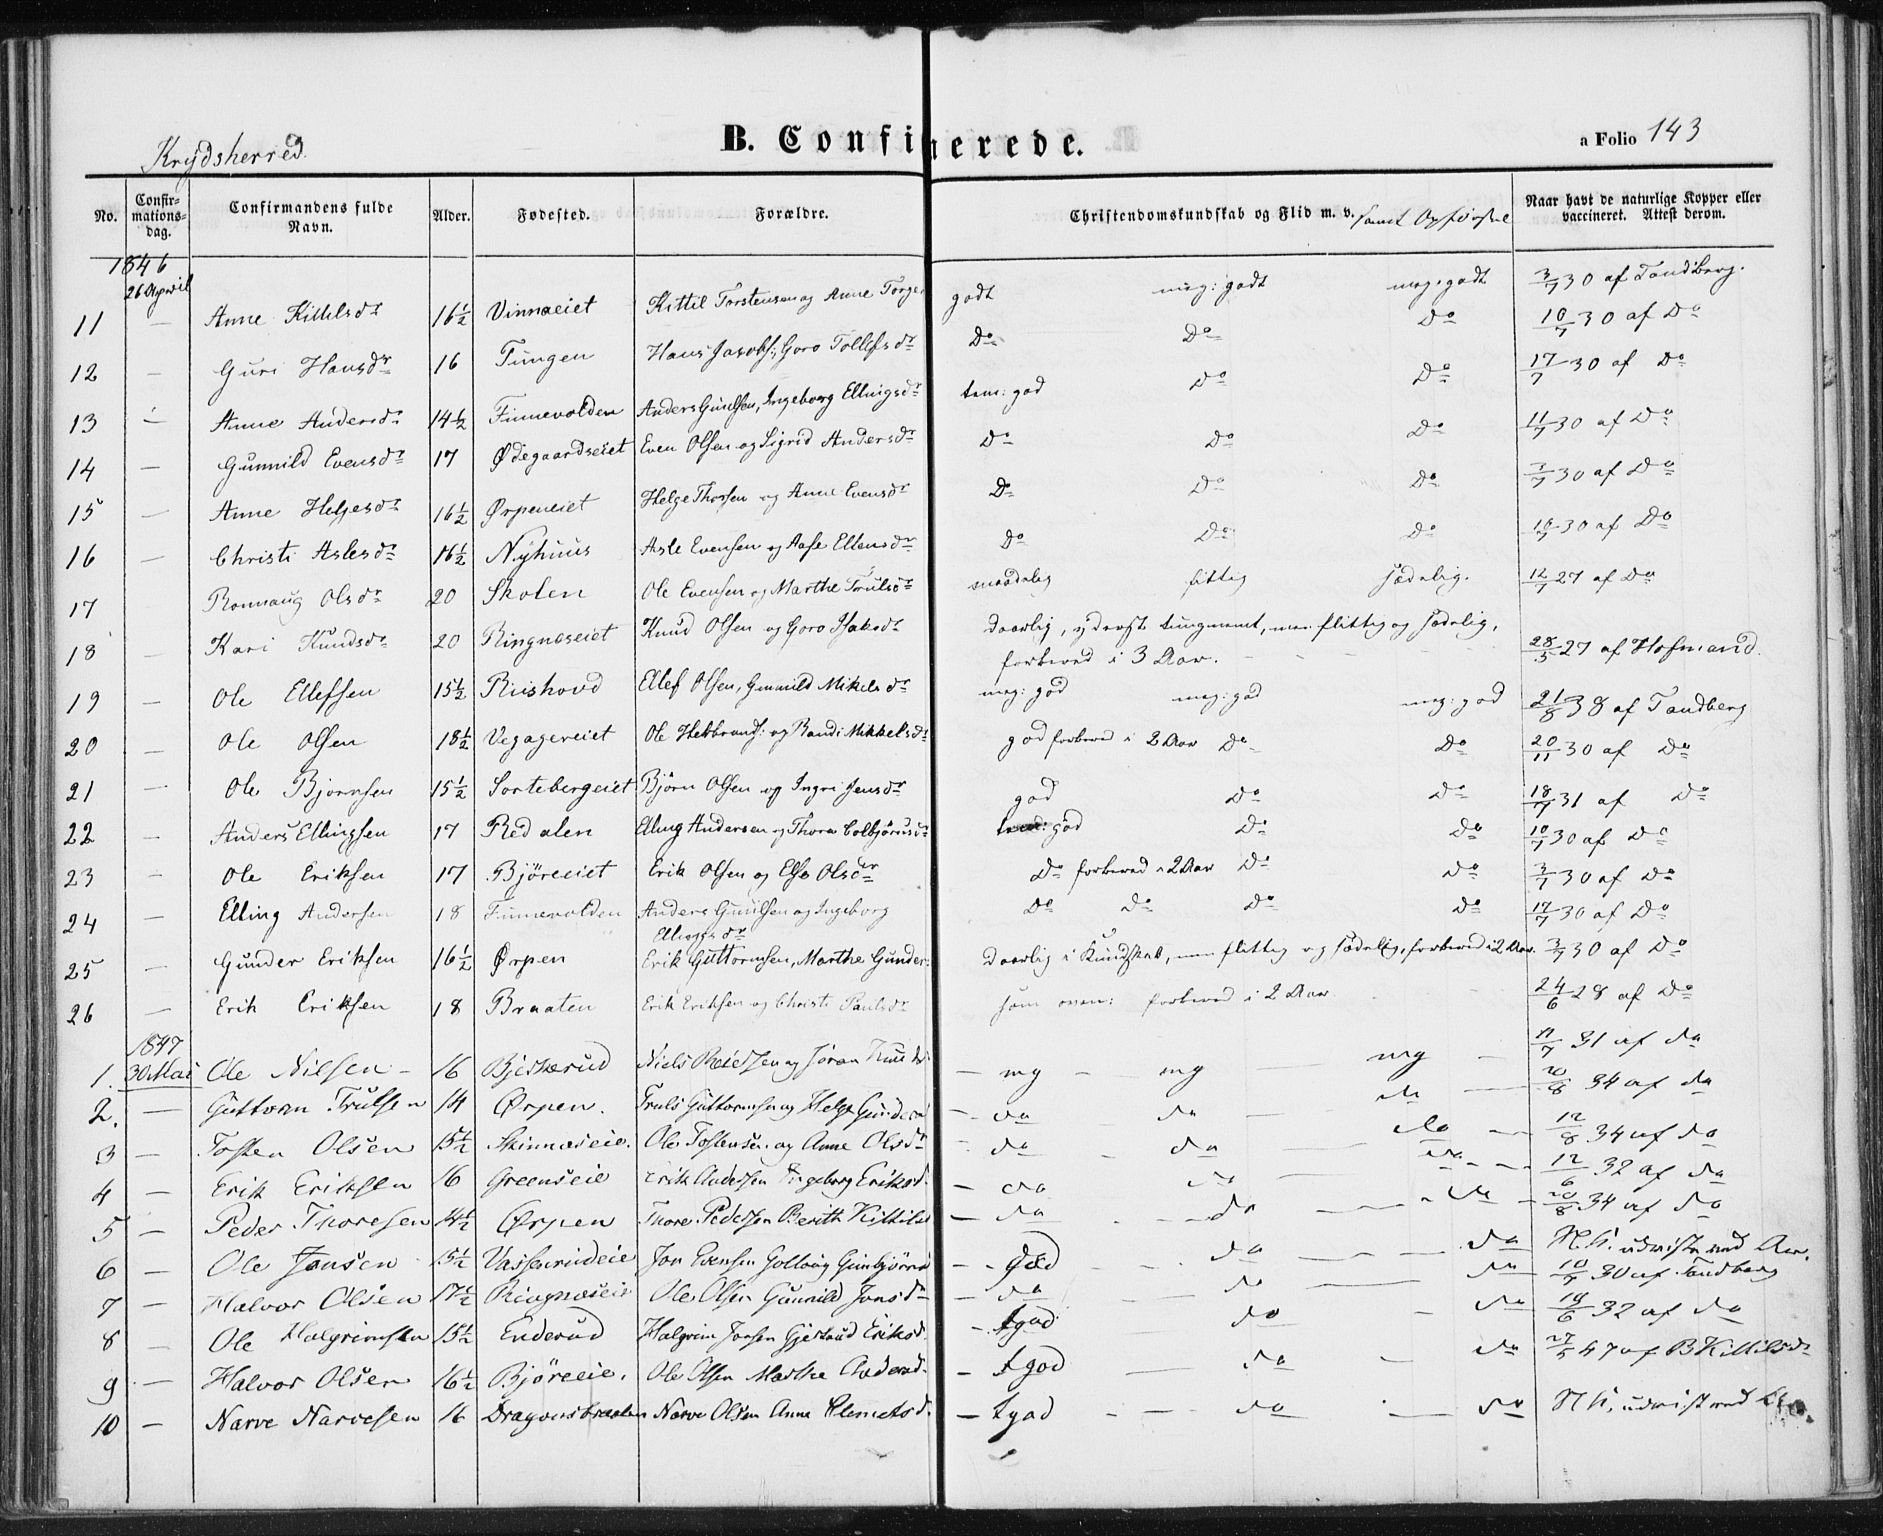 Krydsherred.
B. Confirmerede.
a Folio 143
No. Confirmations-dag. Confirmandens fulde Navn. Alder. Fødested. Forældre. Christendomskundskab og Flid m. v. samt Opførsel Naar havt de naturlige Kopper eller vaccineret. Attest derom.
1846
26 April
11 — Anne Kittilsdr 16½ Vinnæeiet Kittil Torstensen og Anne Torge godt meg: godt meg: godt 3/7 30 af Tandberg.
12 — Guri Hansdr 16 Tungen Hans Jacobs: Goro Tollefsdr Do Do Do 10/7 30 af Do
13 — Anne Andersdr 14½ Finnevolden Anders Gundsen, Ingeborg Ellingsdr tem: god Do Do 17/7 30 af Do
14 — Gunnild Evensdr 17 Ødegaardseiet Even Olsen og Sigrid Andersdr Do Do Do 11/7 30 af Do
15 — Anne Helgesdr 16½ Ørpeneiet Helge Thorsen og Anne Evensdr Do Do Do 3/7 30 af Do
16 — Christi Aslesdr 16½ Nyhuus Asle Evensen og Aase Ellensdr Do Do Do 10/7 30 af Do
17 — Ronnaug Olsdr 20 Skolen Ole Evensen og Marthe Trulsdr maadelig flittig sædelig. 12/7 27 af Do
18 — Kari Knudsdr 20 Ringnæseiet Knud Olsen og Goro Isaksdr daarlig, yderst tungnemt, men flittig og sædelig,
forbered i 3 Aar. 28/5 27 af Hofmand.
19 — Ole Ellefsen 15½ Riishovd Ellef Olsen, Gunnild Mikelsdr meg: god meg: god meg: god 21/8 38 af Tandberg
20 — Ole Olsen 18½ Vegagereiet Ole Helbrands: og Randi Mikkelsdr god forbered i 2 Aar Do Do 20/11 30 af Do
21 — Ole Bjørnsen 15½ Sortebergeiet Bjørn Olsen og Ingri Jensdr god Do Do 18/7 31 af Do
22 — Anders Ellingsen 17 Redalen Elling Andersen og Thora Colbjørnsdr tem: god Do Do 10/7 30 af Do
23 — Ole Eriksen 17 Bjøreeiet Erik Olsen og Else Olsdr Do forbered i 2 Aar Do Do 3/7 30 af Do
24 — Elling Andersen 18 Finnevolden Anders Gundsen og Ingeborg
Ellingsdr Do Do Do Do 17/7 30 af Do
25 — Gunder Eriksen 16½ Ørpen Erik Guttormsen, Marthe Gunder: daarlig i Kundskab, men flittig og sædelig, forbered i 2 Aar 3/7 30 af Do
26 — Erik Eriksen 18 Braaten Erik Eriksen og Christi Paulsdr som oven: forbered i 2 Aar 24/6 28 af Do
1847
1. 30 Mai Ole Nilsen 16 Bjeskerud Niels Reiersen og Jøran Knu — mg — mg — mg — 11/7 31 af do
2. — Guttorm Trulsen 14 Ørpen. Truls Guttormsen og Helge Gunders — do do do 20/8 34 af do
3 — Tosten Olsen 15½ Skinnæseie. Ole Tostensen og Anne Olsdr — do do do 12/8 34 af do
4 — Erik Eriksen 16 Greenseie Erik Andersen Ingeborg Eriksd. — do do do 12/6 32 af do
5 — Peder Thoresen 14½ Ørpen Thore Pedersen Berith Kittilsd — do do do 20/8 34 af do
6 — Ole Jonsen 15½ Vassenrudeie Jon Evensen Golloug Gunbjørnsd — god do do N.K. udvist ved Ar.
7 — Halvor Olsen 17½ Ringnæseie Ole Olsen Gunnild Jonsdr — do do do 10/7 30 af Tandberg
8 — Ole Halgrimsen 15½ Enderud Halgrim Jonsen Gjertrud Eriksd. — tgod do do 14/6 32 af do
9 — Halvor Olsen 16½ Bjøreeie. Ole Olsen Marthe Andersd. — tgod do do 27/5 47 af B Kittilsdr
10 — Narve Narvesen 16 Dragonsbraaten Narve Olsen Anne Clemetsd. — tgod do do N.K. udvist ved